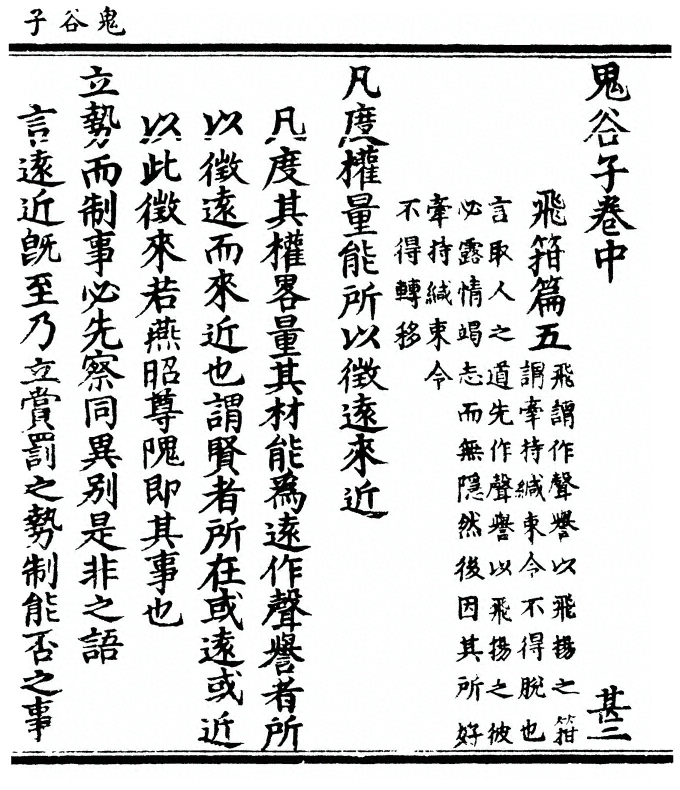 鬼谷子
鬼谷子卷中　甚三
飛箝篇五
飛謂作聲譽以飛揚之箝
謂牽持緘束令不得脫也
言取人之道先作聲譽以飛揚之彼
必露情竭志而無隱然後因其所好
牽持緘束令
不得轉移
凡度權量能所以徵遠來近
凡度其權畧量其材能為遠作聲譽者所
以徵遠而來近也謂賢者所在或遠或近
以此徵來若燕昭尊隗即其事也
立勢而制事必先察同異别是非之語
言遠近旣至乃立賞罰之勢制能否之事